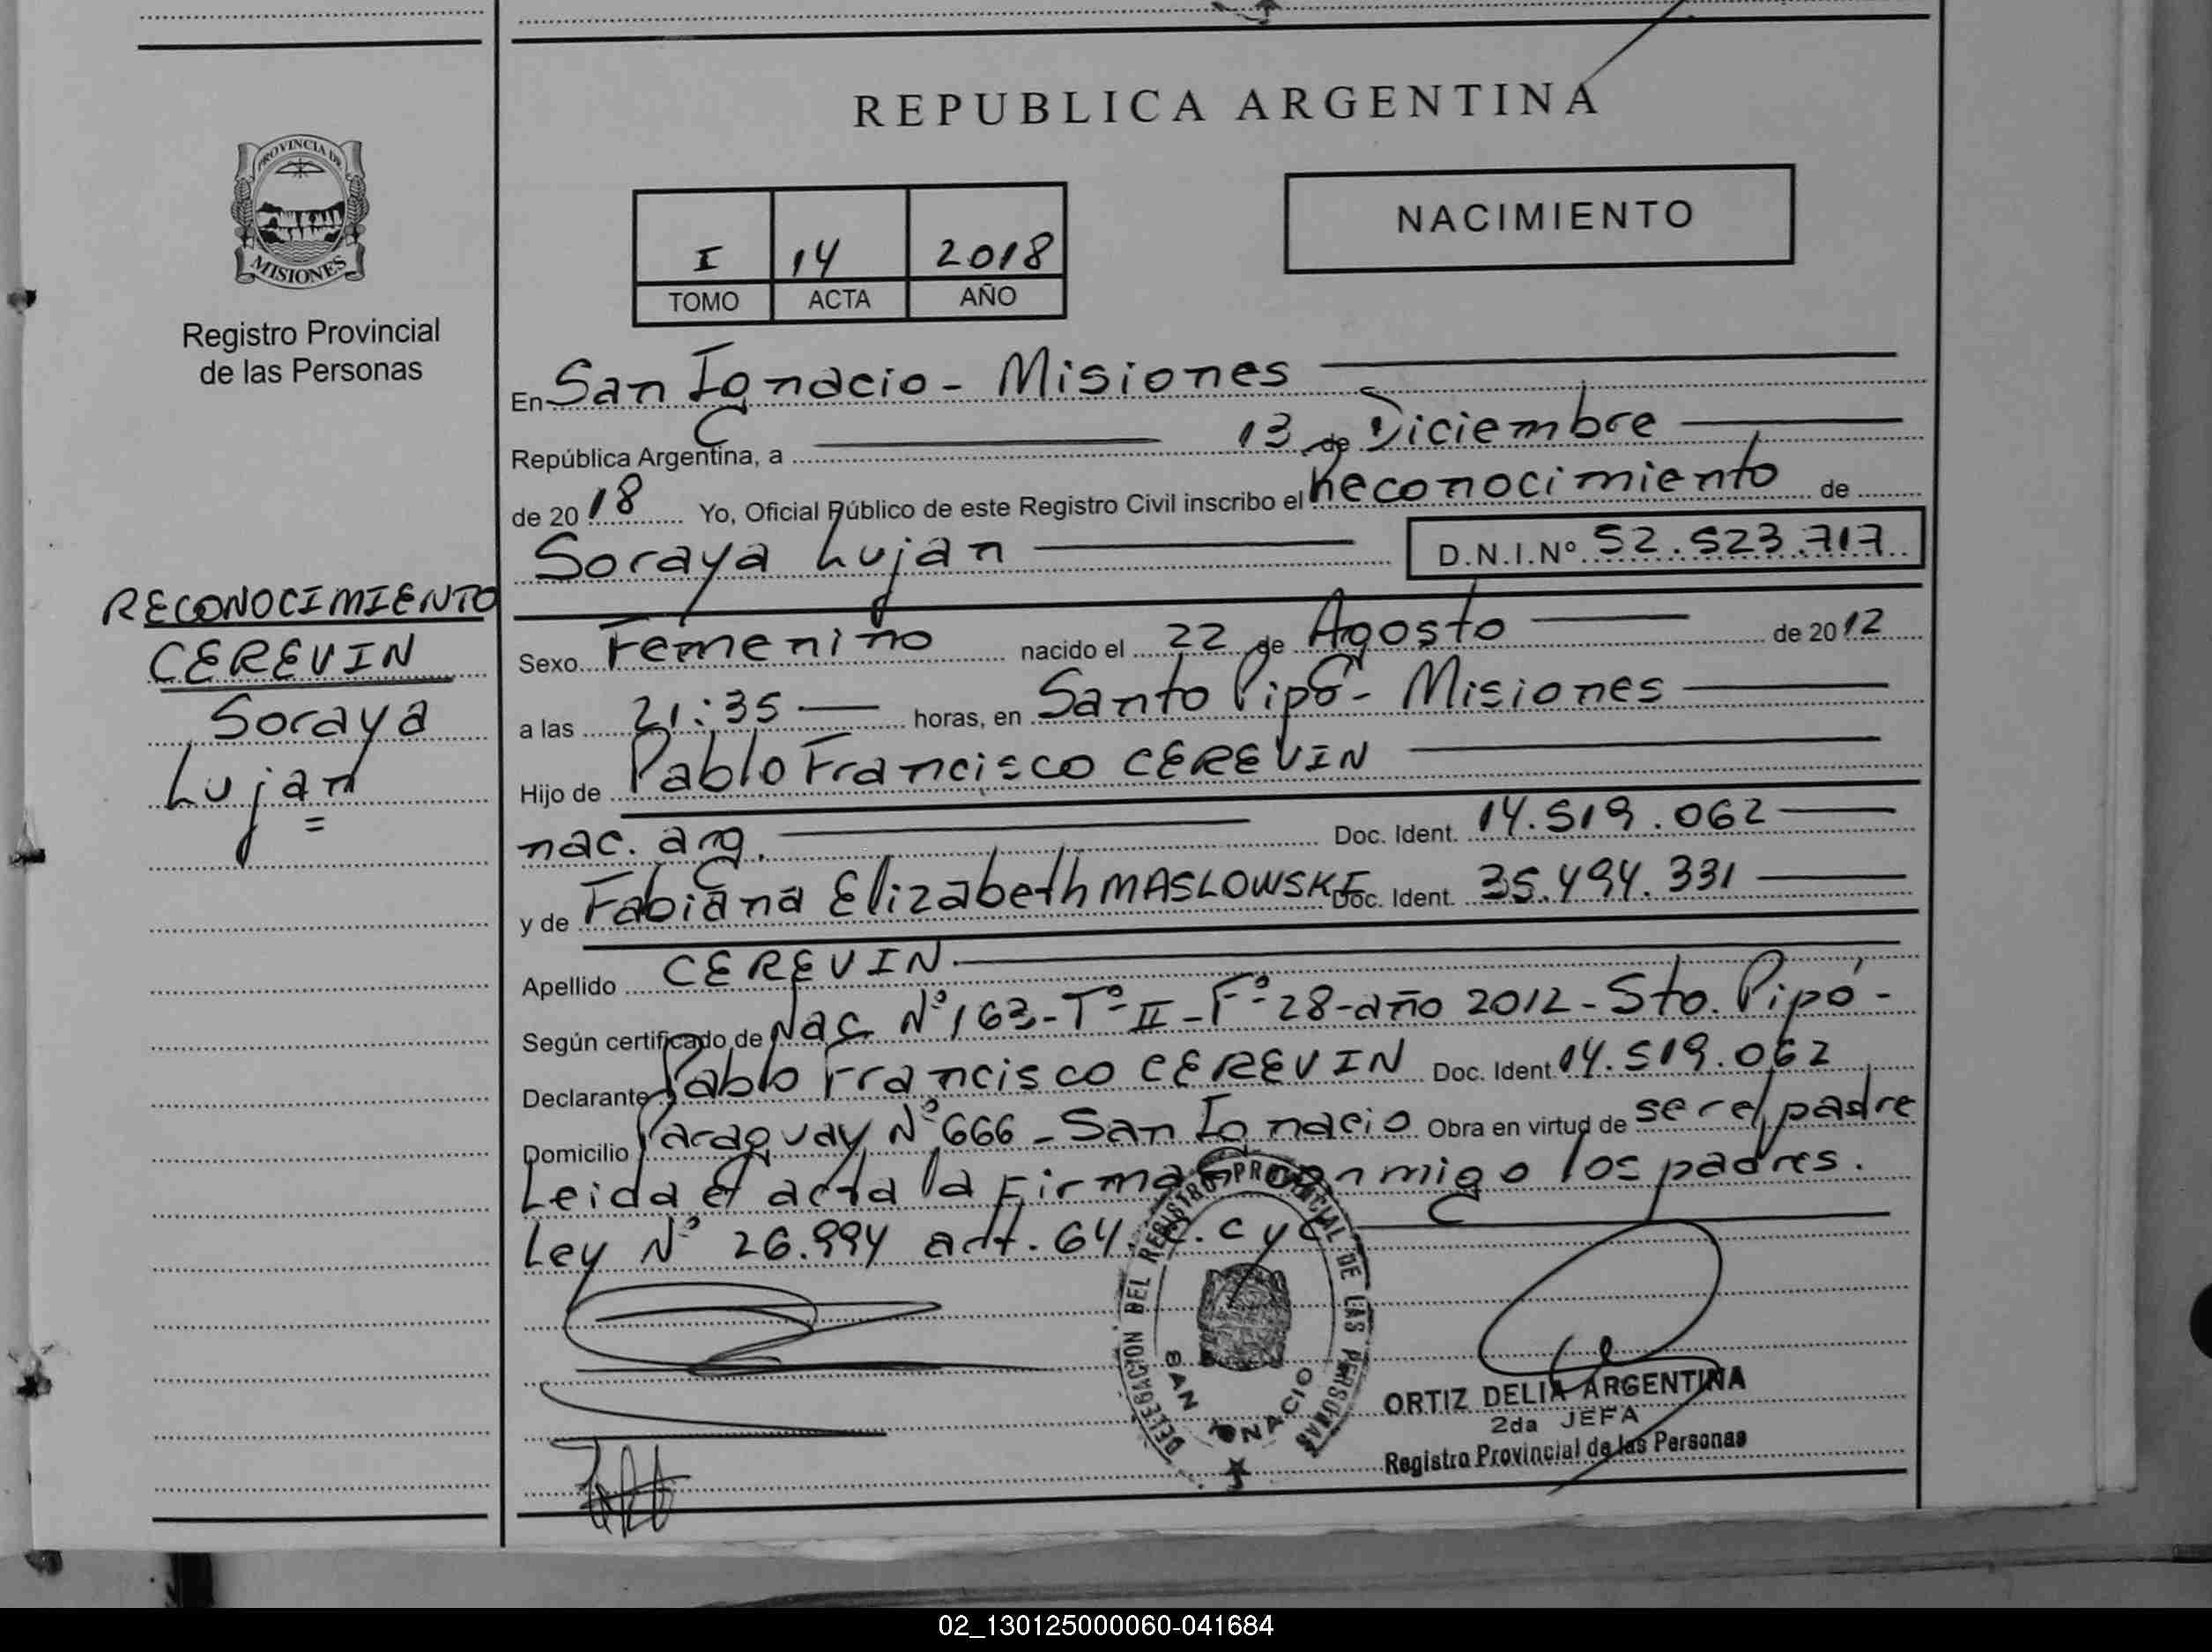 REPUBLICA ARGENTINA
PROVINCIA DE
MISIONES
Registro Provincial
de las Personas
I 14 2018
TOMO ACTA AÑO
NACIMIENTO
En San Ignacio - Misiones
República Argentina, a 13 de Diciembre
de 2018 Yo, Oficial Público de este Registro Civil inscribo el Reconocimiento de
Soraya Lujan D.N.I.Nº 52.523.717
RECONOCIMIENTO
CEREVIN
Soraya
Lujan
Sexo Femenino nacido el 22 de Agosto de 2012
a las 21:35 horas, en Santo Pipó - Misiones
Hijo de Pablo Francisco CEREVIN
nac. arg. Doc. Ident. 14.519.062
y de Fabiana Elizabeth MASLOWSKI Doc. Ident. 35.494.331
Apellido CEREVIN
Según certificado de Nac Nº 163 - Tº II - Fº 28 - año 2012 - Sto. Pipó -
Declarante Pablo Francisco CEREVIN Doc. Ident 14.519.062
Domicilio Paraguay Nº 666 - San Ignacio Obra en virtud de ser el padre
Leida el acta la Firman conmigo los padres.
Ley Nº 26.994 art. 64. C. C y C
DELEGACION DEL REGISTRO PROVINCIAL DE LAS PERSONAS
SAN IGNACIO
ORTIZ DELIA ARGENTINA
2da JEFA
Registro Provincial de las Personas
02_130125000060-041684